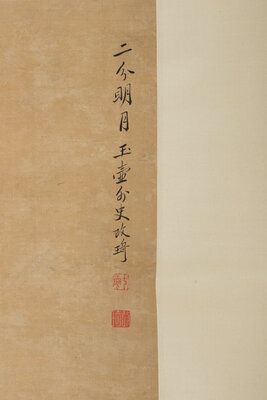 二分明月玉壺外史改琦